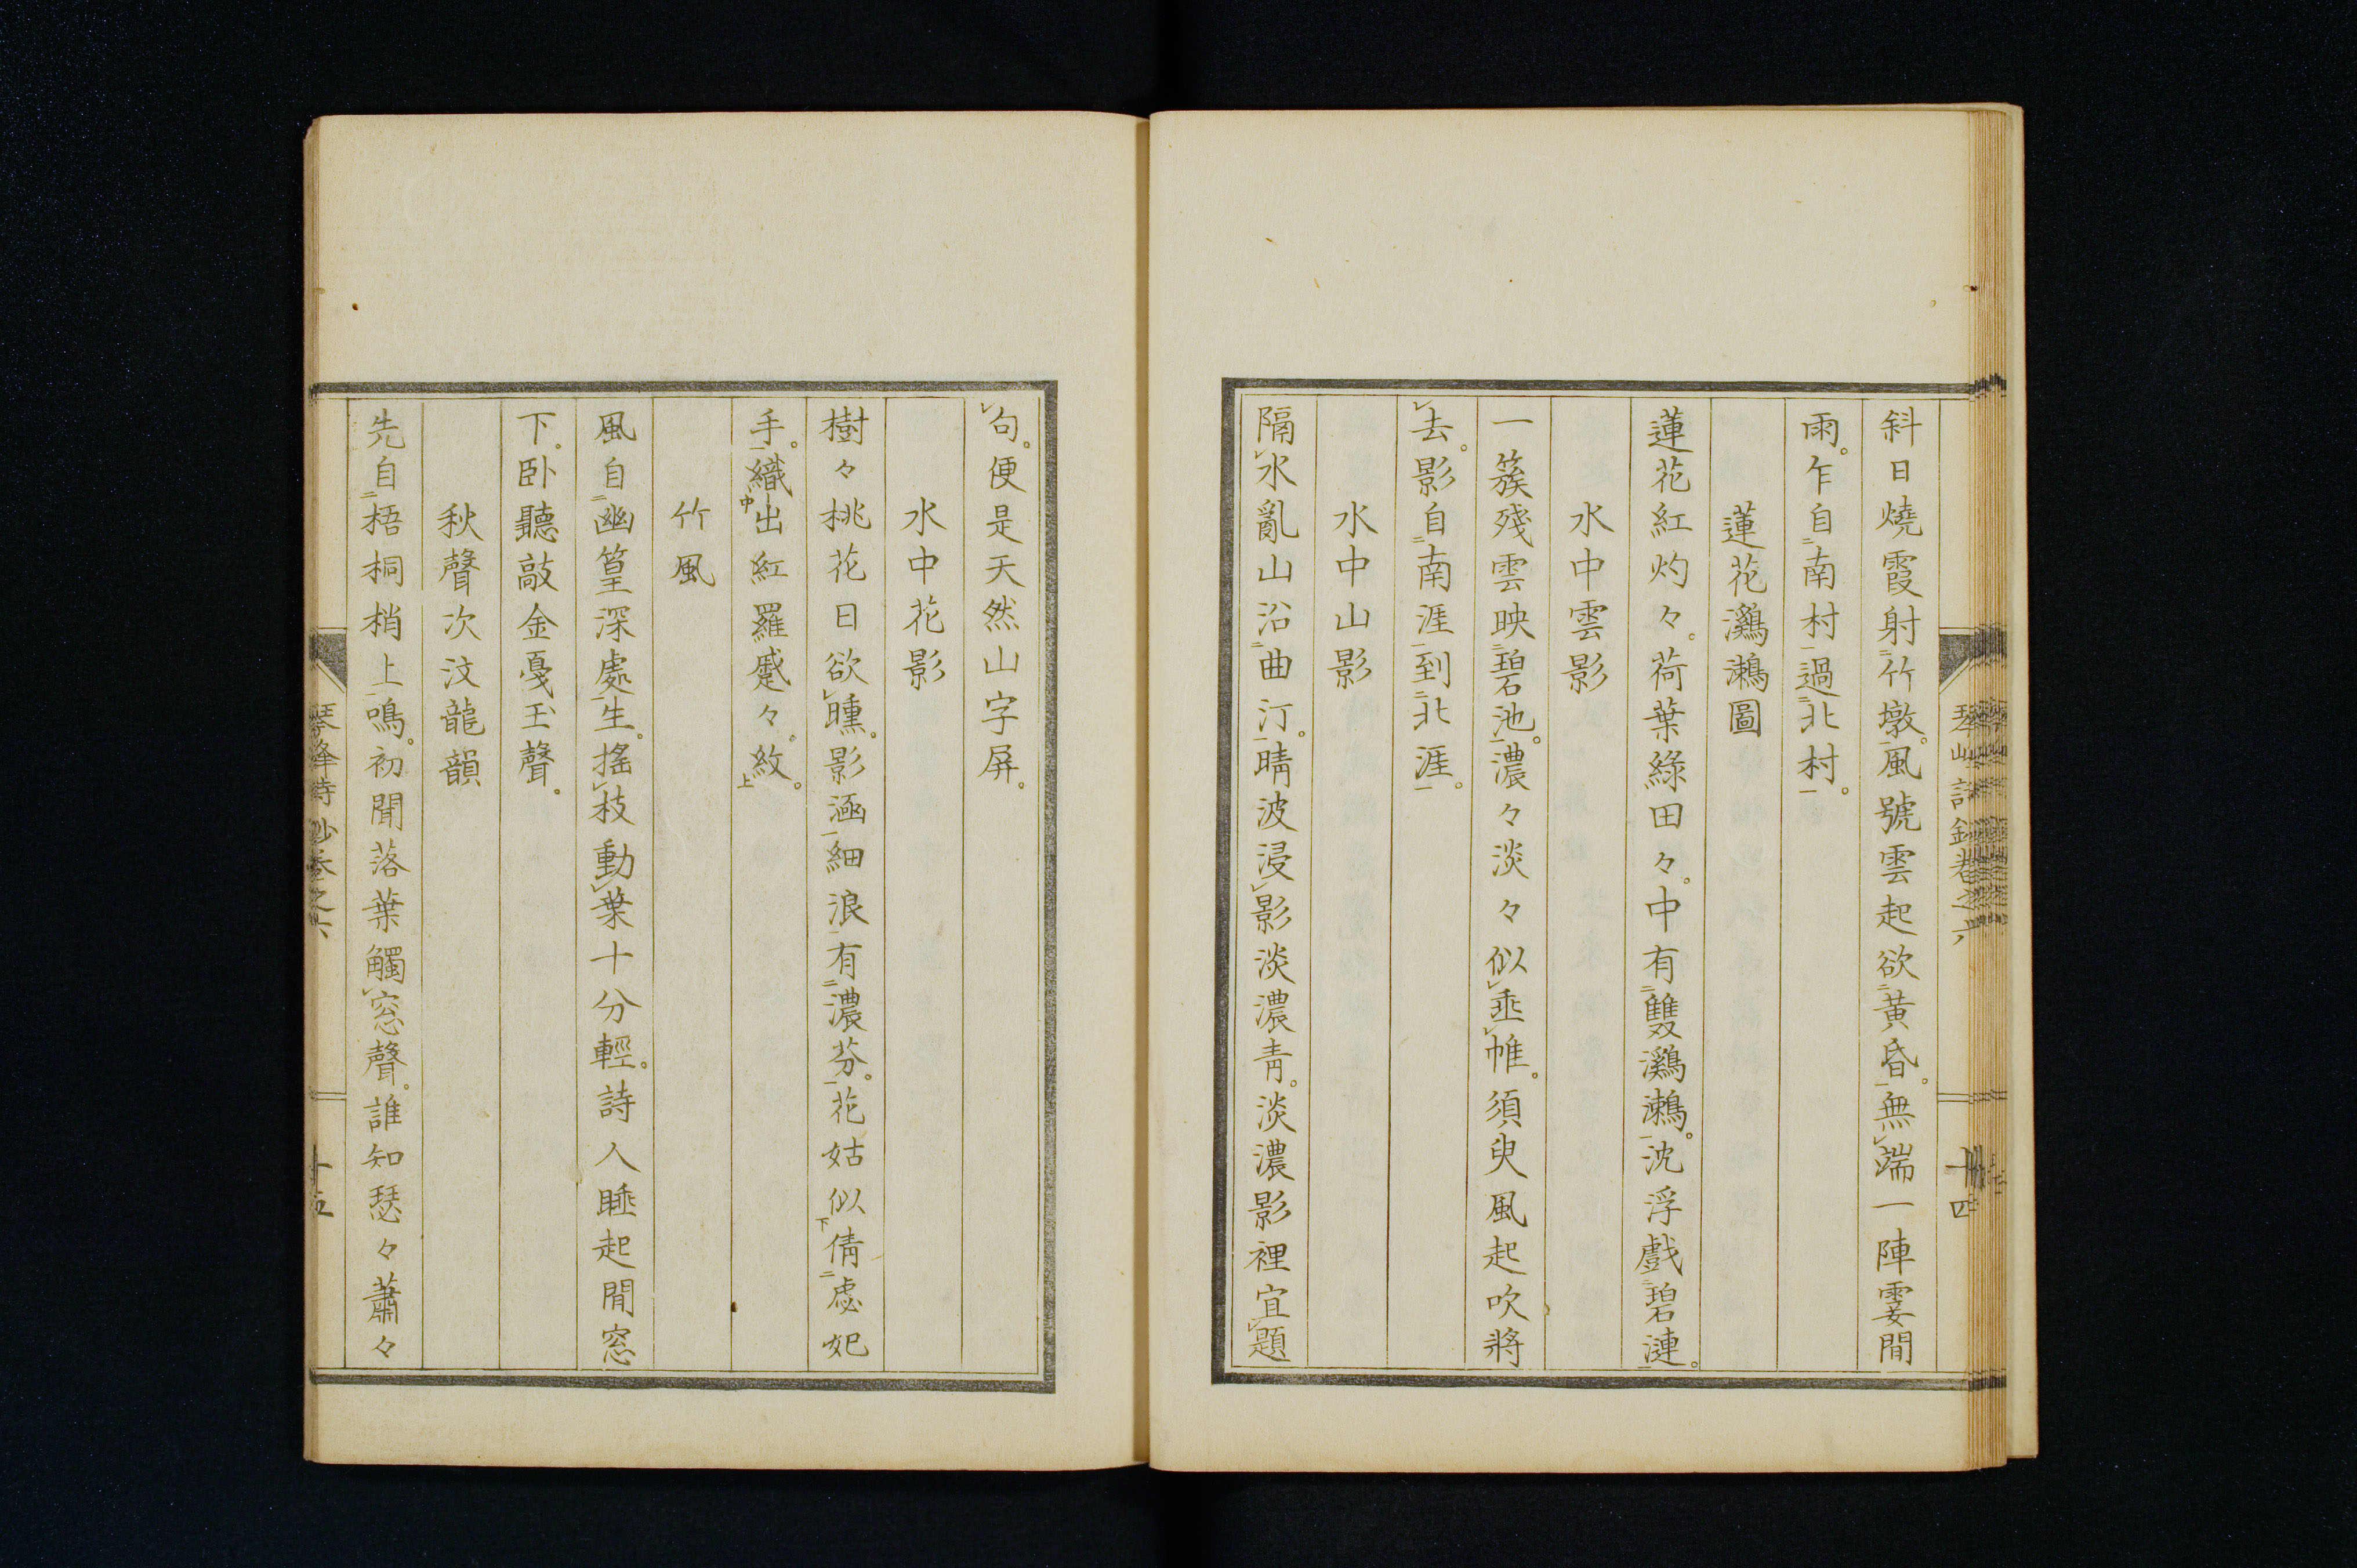 斜日燒霞射竹墩。風號雲起欲黃昏。無端一陣霎間
雨。乍自南村過北村。
蓮花鸂鶒圖
蓮花紅灼々。荷葉綠田々。中有雙鸂鶒。沈浮戲碧漣。
水中雲影
一簇殘雲映碧池。濃々淡々似垂帷。須臾風起吹將
去。影自南涯到北涯。
水中山影
隔水亂山沿曲汀。晴波浸影淡濃青。淡濃影裡宜題
句。便是天然山字屏。
水中花影
樹々桃花日欲曛。影涵細浪有濃芬。花姑似倩處妃
手。織出紅羅蹙々紋。
竹風
風自幽篁深處生。搖枝動葉十分輕。詩人睡起閒窓
下。卧聽敲金戛玉聲。
秋聲次汶龍韻
先自梧桐梢上鳴。初聞落葉觸窓聲。誰知瑟々蕭々
琴峰詩鈔卷之六
十五